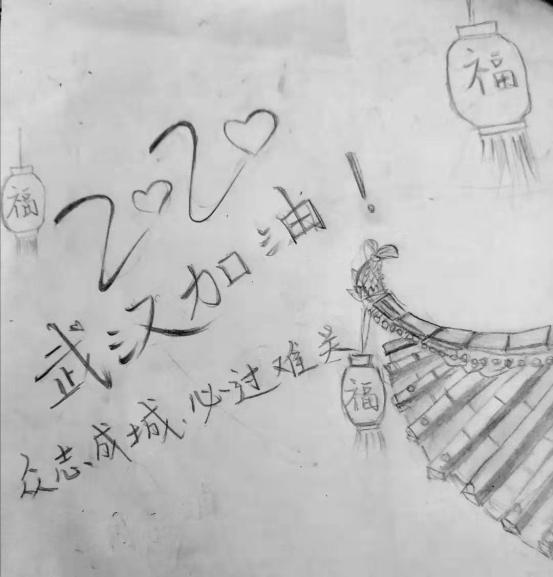 福
福
2020
武汉加油！
众志成城，必过难关
福